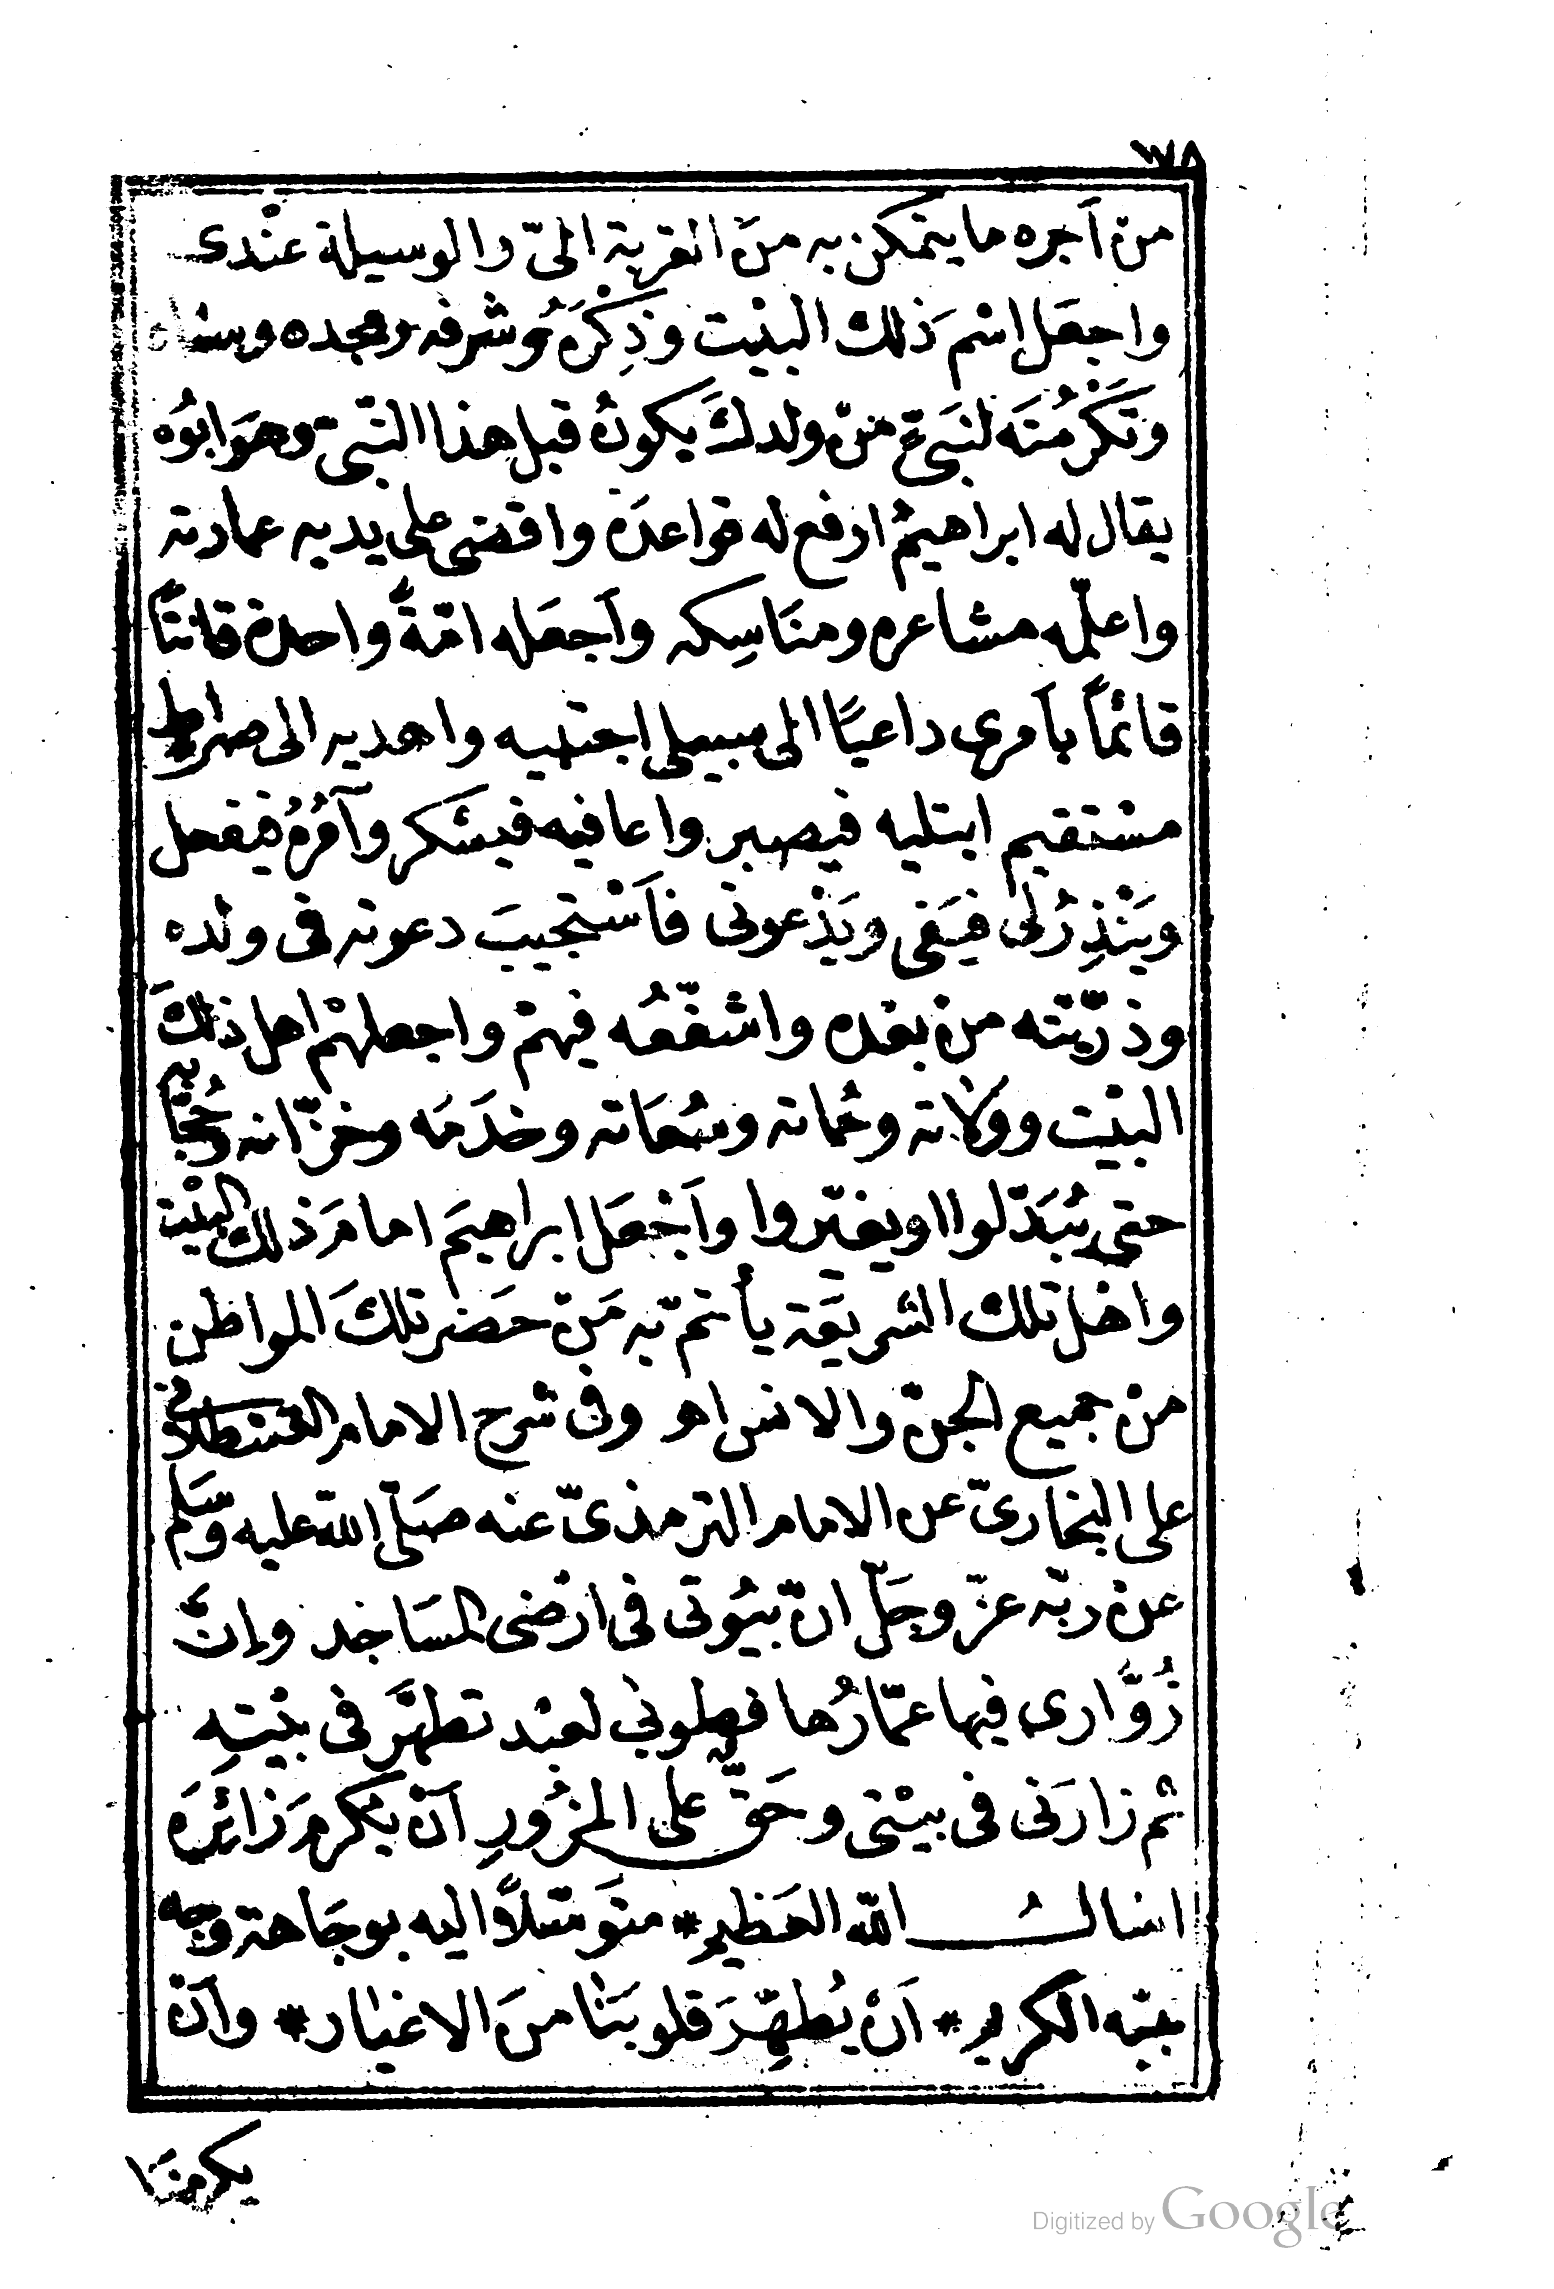 ٧٨
من اَجره ما يتمكن به منَ القربة الىّ والوسيلة عنْدى
واجعَل اسْمَ ذلك البيْت وذِكْرَهُ وشرفه ومجده وسناه
وتَكْرُمتَه لنَبىّ منْ ولدكَ يكونُ قبل هذا النّبى وهوَ ابوُه
يقال له ابراهيمُ ارفع له قواعدَه واقضى على يديه عمارته
واعلّمه مشاعره ومنَاسِكه وأجعَله امّةً واحدة قانتاً
قائماً بأمرى داعيًا الى سبيلى اجتبيه واهديه الى صراط
مسْتقيم ابتليه فيصبر واعافيه فيشكر وآمُرُهُ فيفعل
ويَنْذِرُ لى فيَفى ويَدْعونى فاَسْتجيبَ دعوته فى ولده
وذرّيّته منْ بعْده واشفّعُه فيهمْ واجعلهْم اهل ذلكَ
البيْت وولاته وحُماته وسُعَاته وخدَمَه وخزّانه وحُجّابه
حتى يُبَدّلوا او يغيّروا واَجْعَل ابراهيمَ امامَ ذلك البيْت
واهْل تلك الشريعَة يأتمّ به مَنْ حَضر تلكَ المواطن
منْ جميع الجنّ والانس اه وفى شرح الامام القسْطلانى
على البخارىّ عن الامام الترمذىّ عنه صَلّى الله عليه وسَلم
عنْ ربّه عزّ وجَلّ انّ بيُوتى فى ارْضى المسَاجد وإنّ
زُوَّارى فيها عمّارُها فطوبى لعبْد تطهَّر فى بيْتِه
ثم زارَنى فى بيْتى وحَقّ على المزُورِ اَنْ يكرمَ زائرَه
اسْالُ الله العَظيم * متوَسّلاً اليه بوجَاهة وجه
نبيّه الكريم * اَنْ يُطهِّرَ قلوبَنا منَ الاغيار * واَنْ
يكرمنَا
Digitized by Google